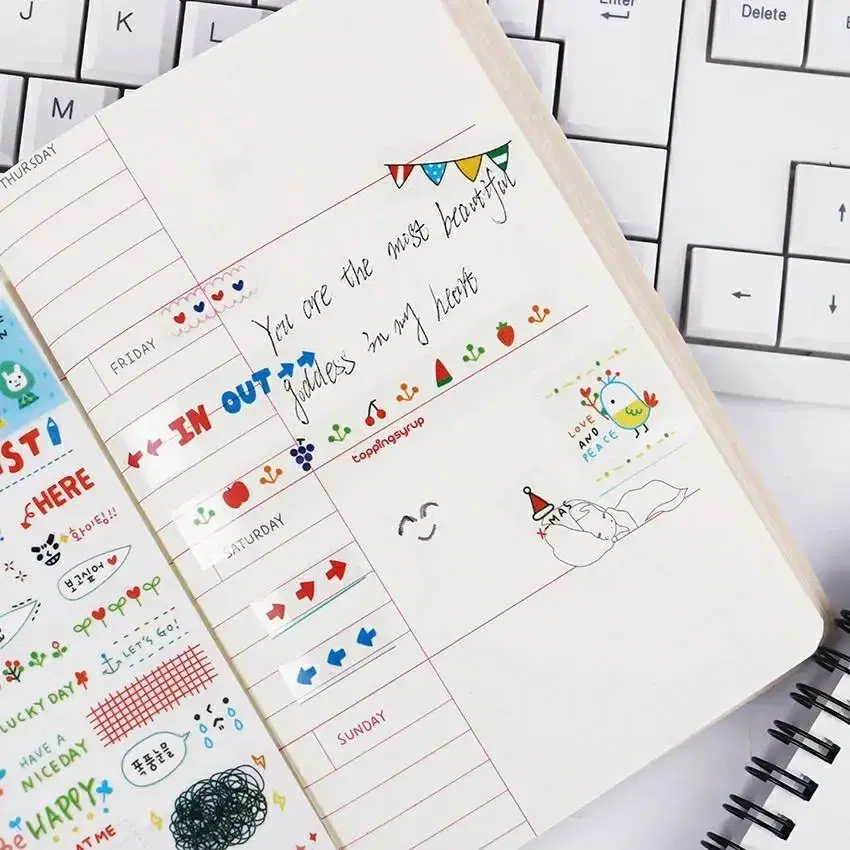 J
K
L
Enter
Delete
M
THURSDAY
You are the most beautiful
goddess in my heart
FRIDAY
IN OUT
toppingsyrup
LOVE
AND
PEACE
X-MAS
SATURDAY
SUNDAY
HERE
화이팅!!
보고싶어
LET'S GO!
LUCKY DAY
HAVE A
NICEDAY
폭풍눈물
Be HAPPY
AT ME